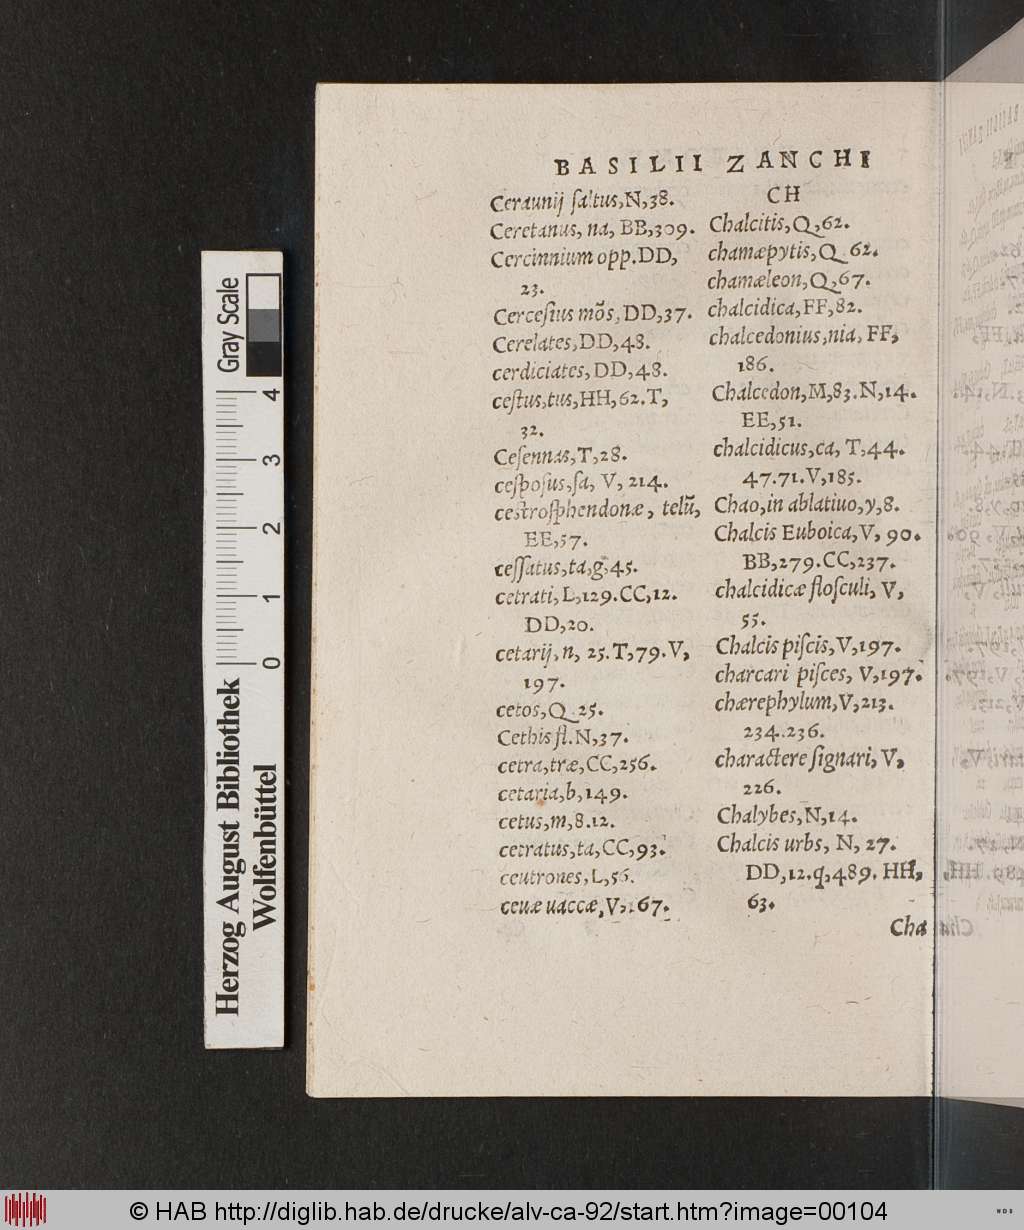 BASILII ZANCHI
Ceraunij ſaltus, N, 38.
Ceretanus, na, BB, 309.
Cercinnium opp. DD,
23.
Cerceſius mõs, DD, 37.
Cerelates, DD, 48.
cerdiciates, DD, 48.
ceſtus, tus, HH, 62. T,
32.
Ceſennas, T, 28.
ceſpoſus, ſa, V, 214.
ceſtroſphendonæ, telũ,
EE, 57.
ceſſatus, ta, g, 45.
cetrati, L, 129. CC, 12.
DD, 20.
cetarij, n, 25. T, 79. V,
197.
cetos, Q 25.
Cethis fl. N, 37.
cetra, træ, CC, 256.
cetaria, b, 149.
cetus, m, 8. 12.
cetratus, ta, CC, 93.
ceutrones, L, 56.
ceuæ uaccæ, V, 167.
CH
Chalcitis, Q, 62.
chamæpytis, Q 62.
chamæleon, Q, 67.
chalcidica, FF, 82.
chalcedonius, nia, FF,
186.
Chalcedon, M, 83. N, 14.
EE, 51.
chalcidicus, ca, T, 44.
47. 71. V, 185.
Chao, in ablatiuo, y, 8.
Chalcis Euboica, V, 90.
BB, 279. CC, 237.
chalcidicæ floſculi, V,
55.
Chalcis piſcis, V, 197.
charcari piſces, V, 197.
chærephylum, V, 213.
234. 236.
charactere ſignari, V,
226.
Chalybes, N, 14.
Chalcis urbs, N, 27.
DD, 12. q, 489. HH,
63.
Cha
Gray Scale
4 3 2 1 0
Herzog August Bibliothek
Wolfenbüttel
© HAB http://diglib.hab.de/drucke/alv-ca-92/start.htm?image=00104